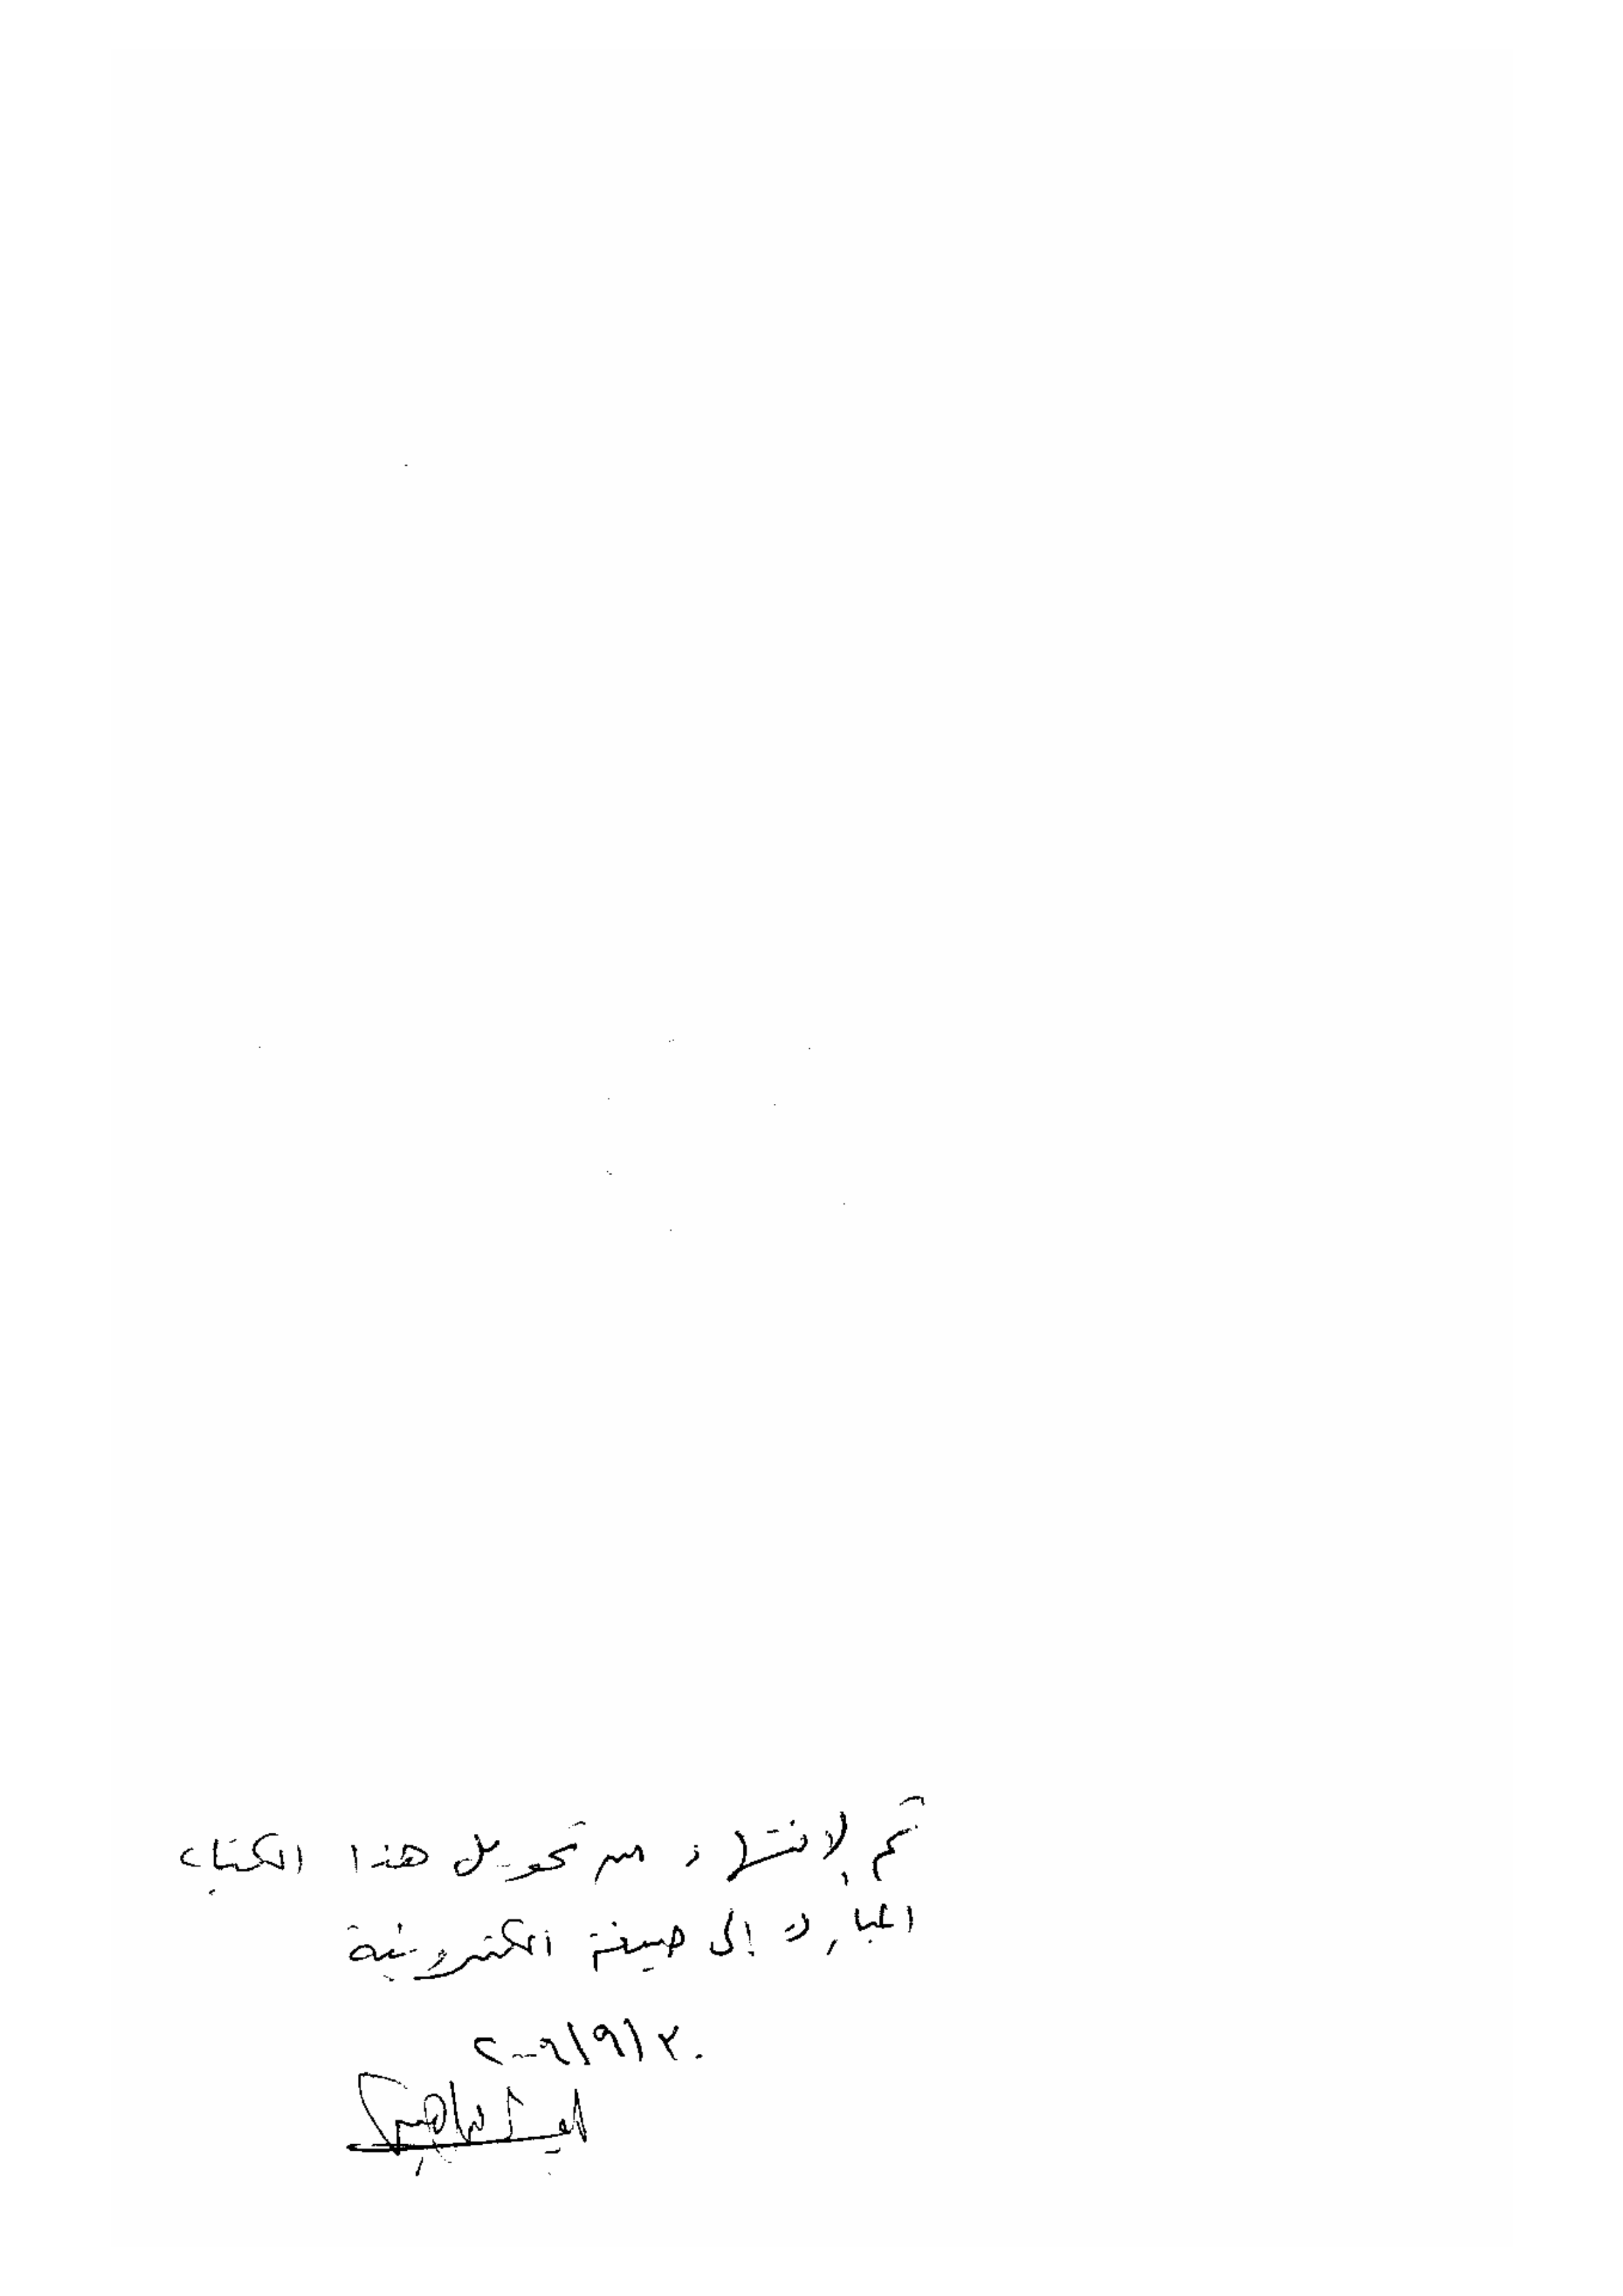 تم الانتهاء من تحويل هذا الكتاب
المبارك إلى صيغة الكترونية
٢٠٠٩/٩/٢٠